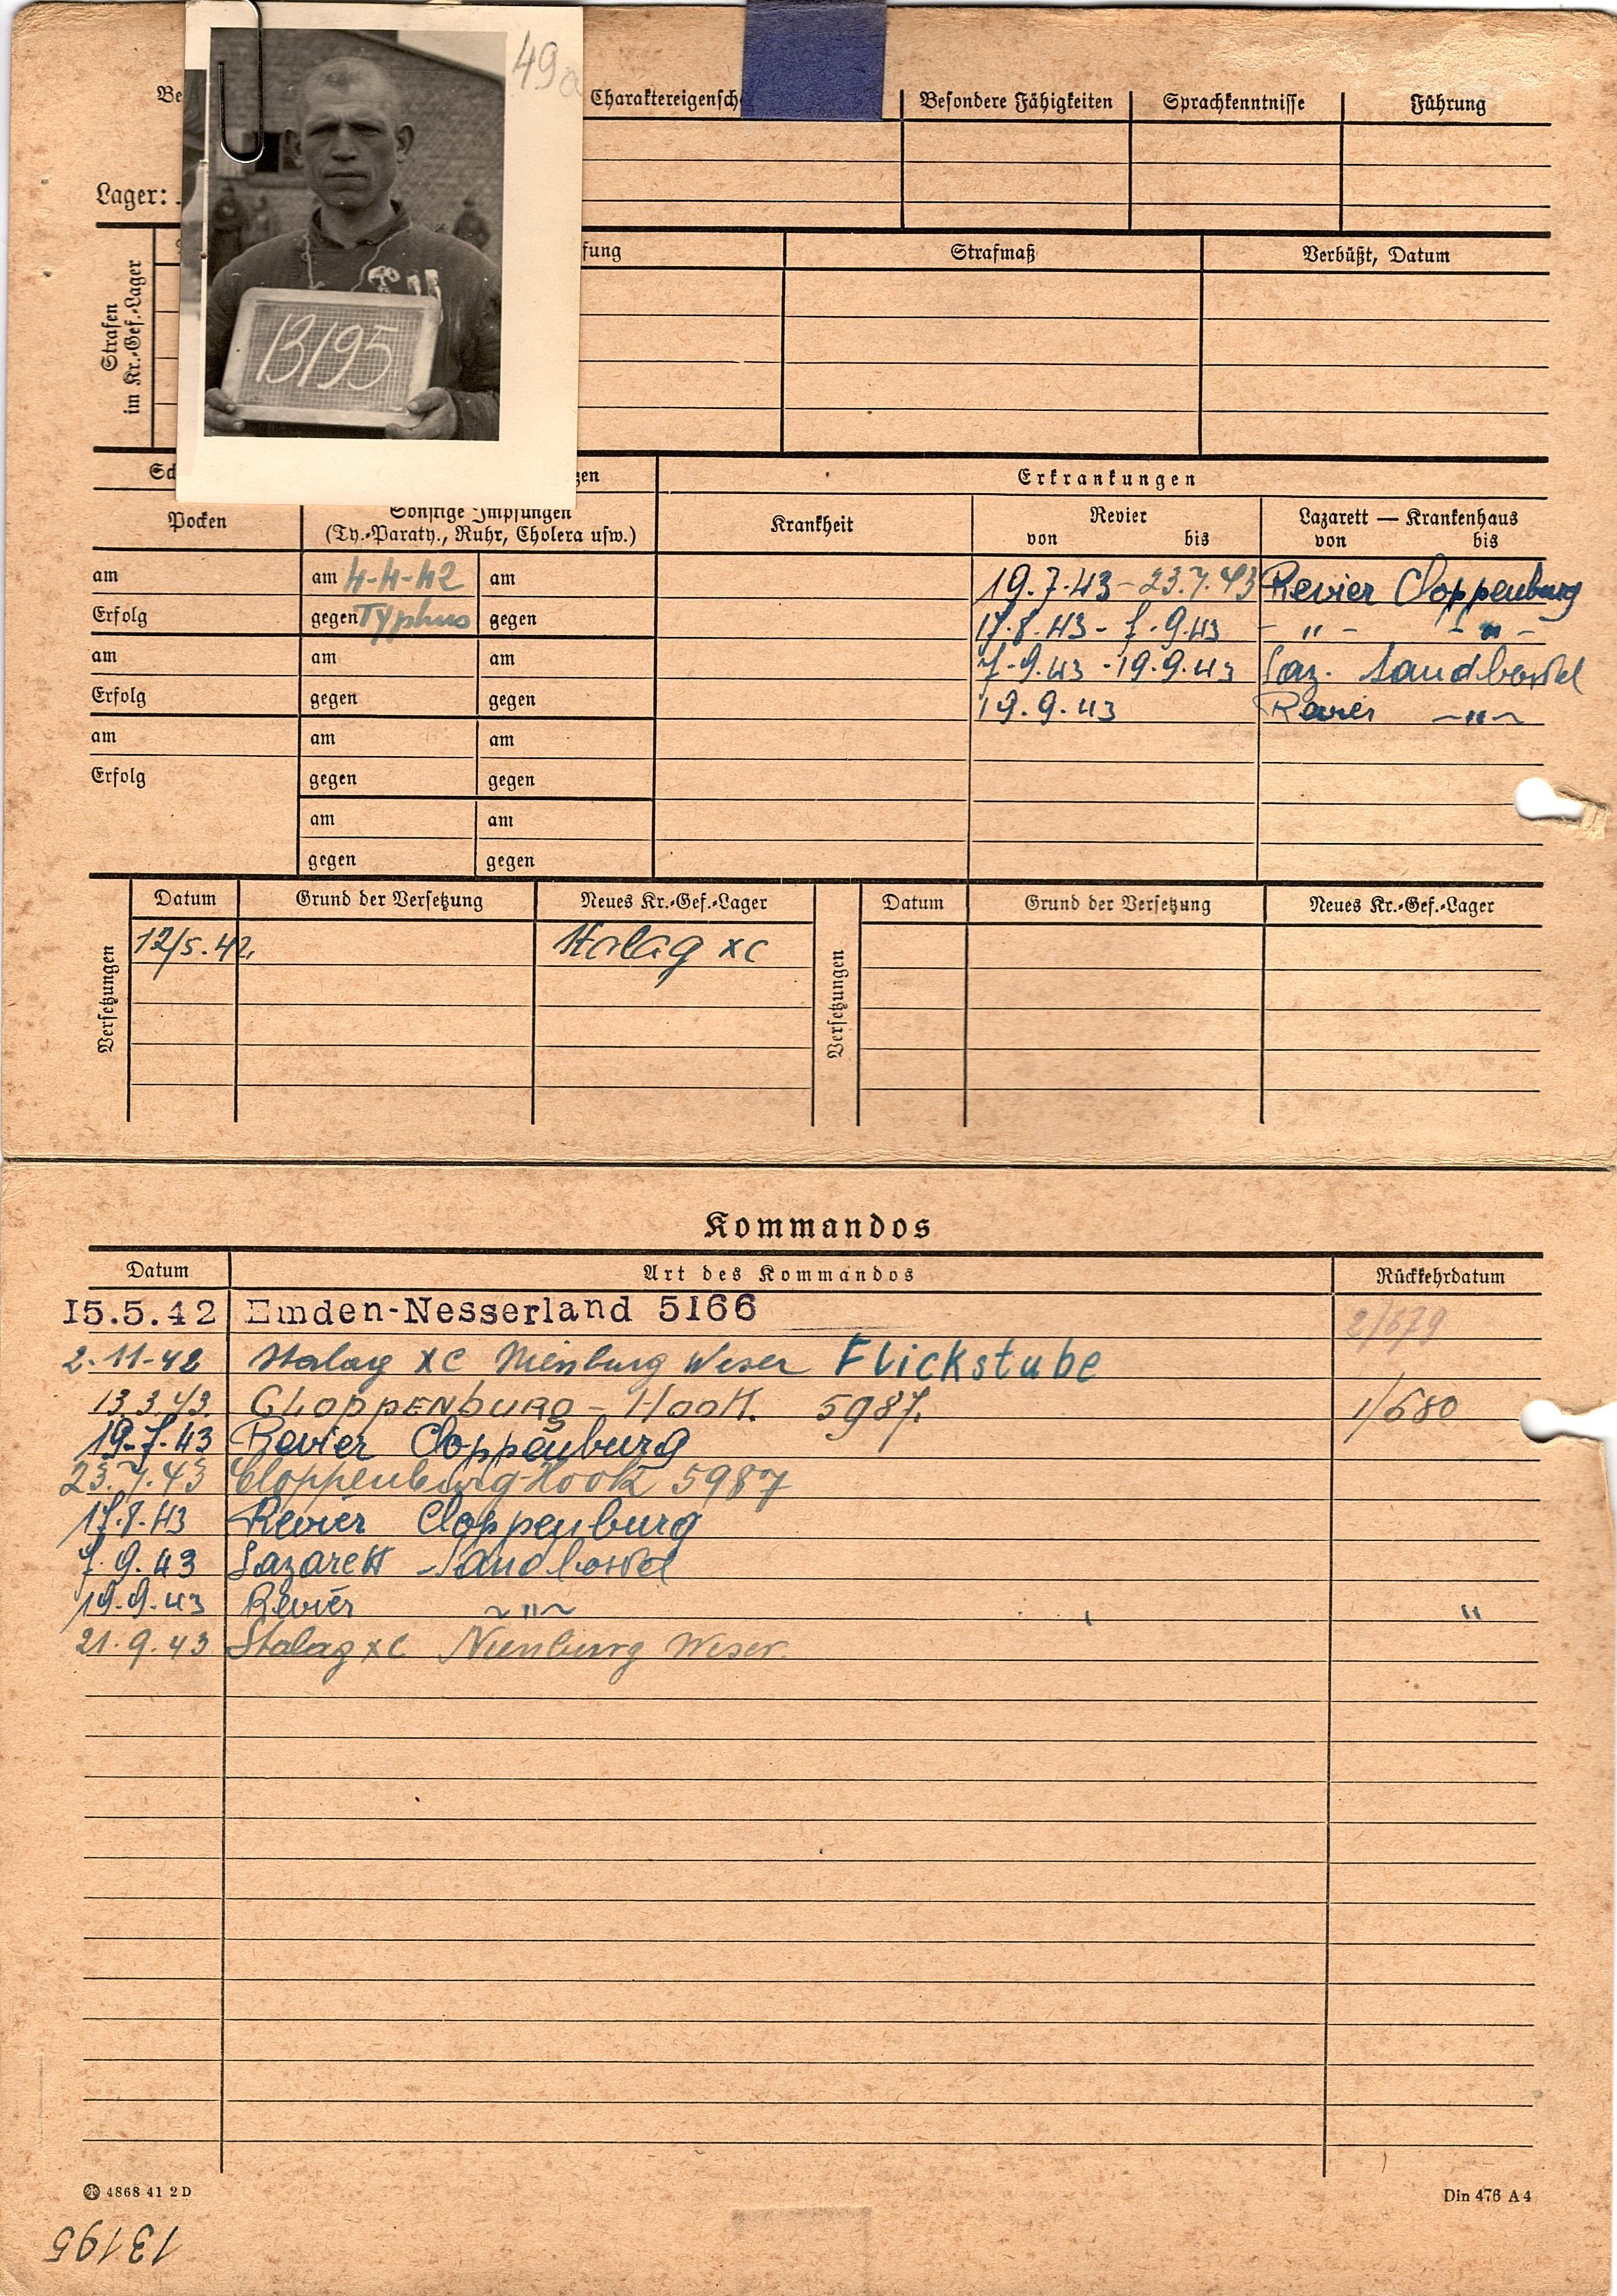 49a
Charaktereigensch
Besondere Fähigkeiten
Sprachkenntnisse
Führung
Lager:
13195
Strafen
im Kr.-Gef.-Lager
fung
Strafmaß
Verbüßt, Datum
Erkrankungen
Pocken
Sonstige Impfungen
(Ty.-Paraty., Ruhr, Cholera usw.)
Krankheit
Revier
von bis
Lazarett — Krankenhaus
von bis
am am 4-4-42 am 19.7.43 - 23.7.43 Revier Cloppenburg
Erfolg gegen Typhus gegen 17.8.43 - 7.9.43 - " - - " -
am am am 7.9.43 - 19.9.43 Laz. Sandbostel
Erfolg gegen gegen 19.9.43 Revier - " -
am am am
Erfolg gegen gegen
am am
gegen gegen
Versetzungen
Datum Grund der Versetzung Neues Kr.-Gef.-Lager
12/5.42. Stalag XC
Versetzungen
Datum Grund der Versetzung Neues Kr.-Gef.-Lager
Kommandos
Datum Art des Kommandos Rückkehrdatum
15.5.42 Emden-Nesserland 5166 2/679
2.11-42 Stalag XC Nienburg Weser Flickstube
13.3.43. CLOPPENBURG - Hook. 5987. 1/680
19.7.43 Revier Cloppenburg
23.7.43 Cloppenburg-Hook 5987
17.8.43 Revier Cloppenburg
7.9.43 Lazarett Sandbostel
19.9.43 Revier ~ " ~ "
21.9.43 Stalag XC Nienburg Weser.
4868 41 2 D
Din 476 A 4
13195